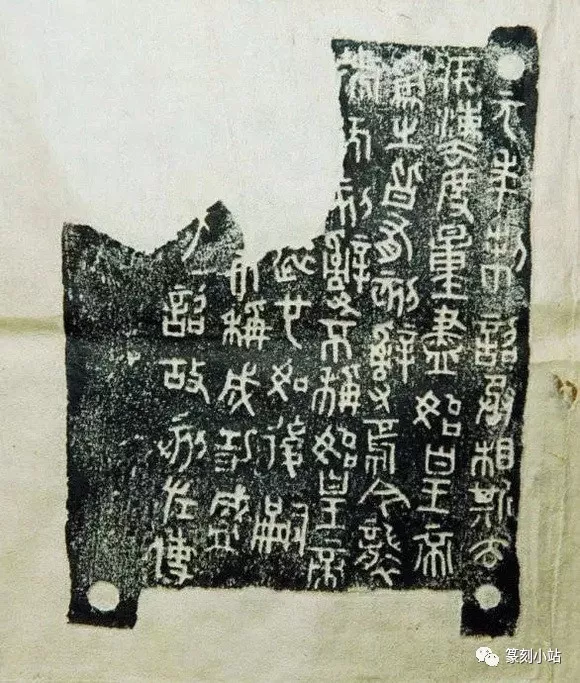 元年制詔丞相斯去
疾灋度量盡始皇帝
為之皆有刻辭焉今襲
號而刻辭不稱始皇帝
也如後嗣
不稱成功盛
詔故刻左使
篆刻小站